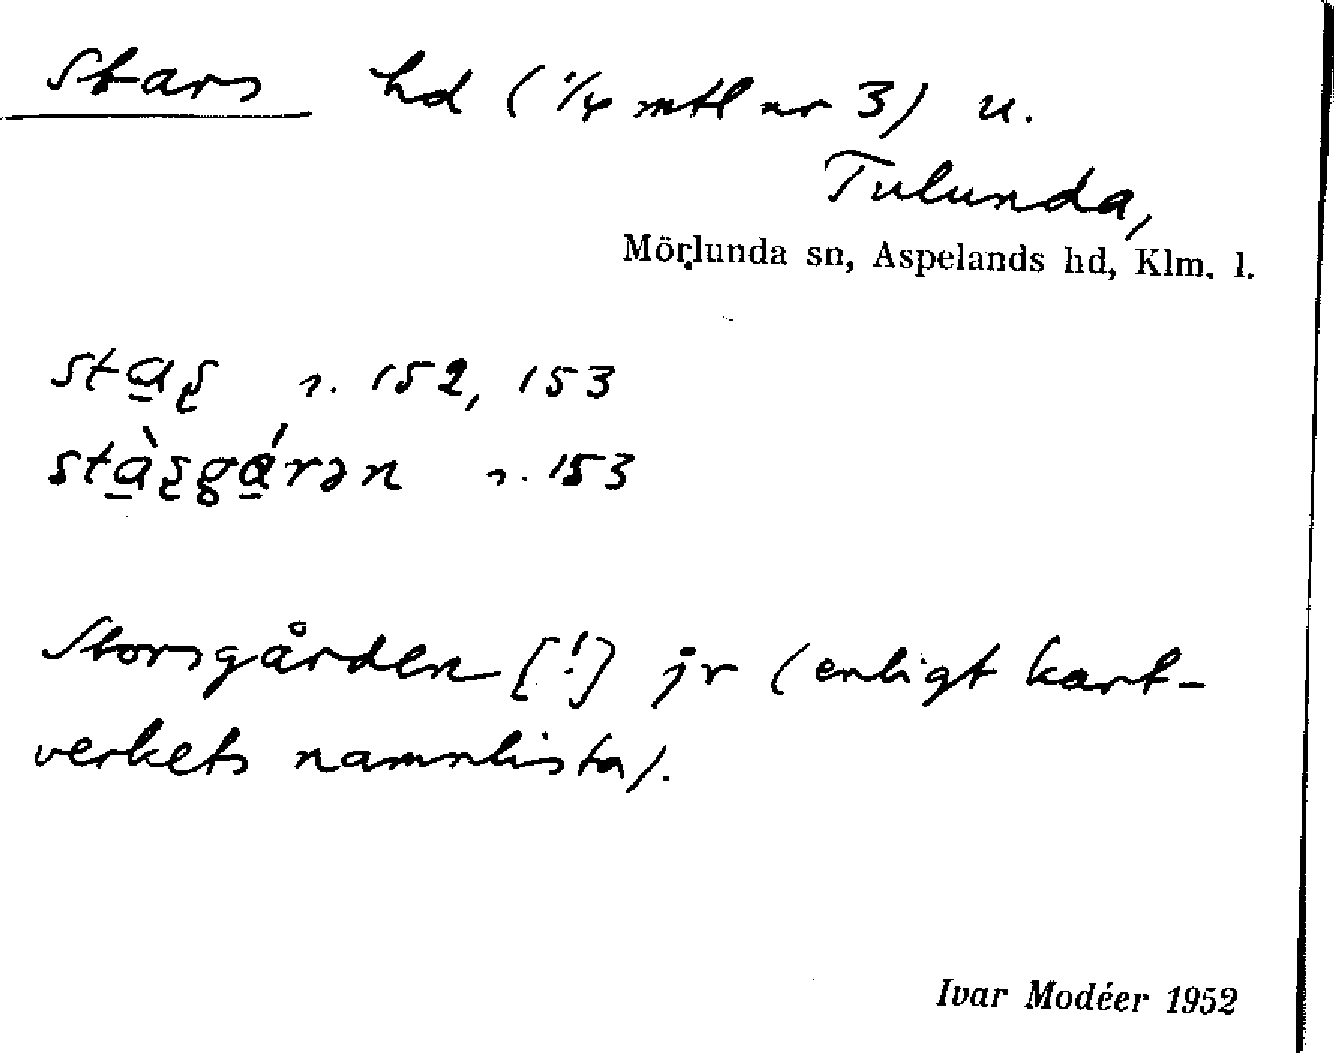 Stars hd (1/4 mtl nr 3) u.
Tulunda,
Mörlunda sn, Aspelands hd, Klm. l.
sta̲ʂ s. 152, 153
stà̲ʂgá̲rən s. 153
Storsgården [!] jr (enligt kart-
verkets namnlista).
Ivar Modéer 1952